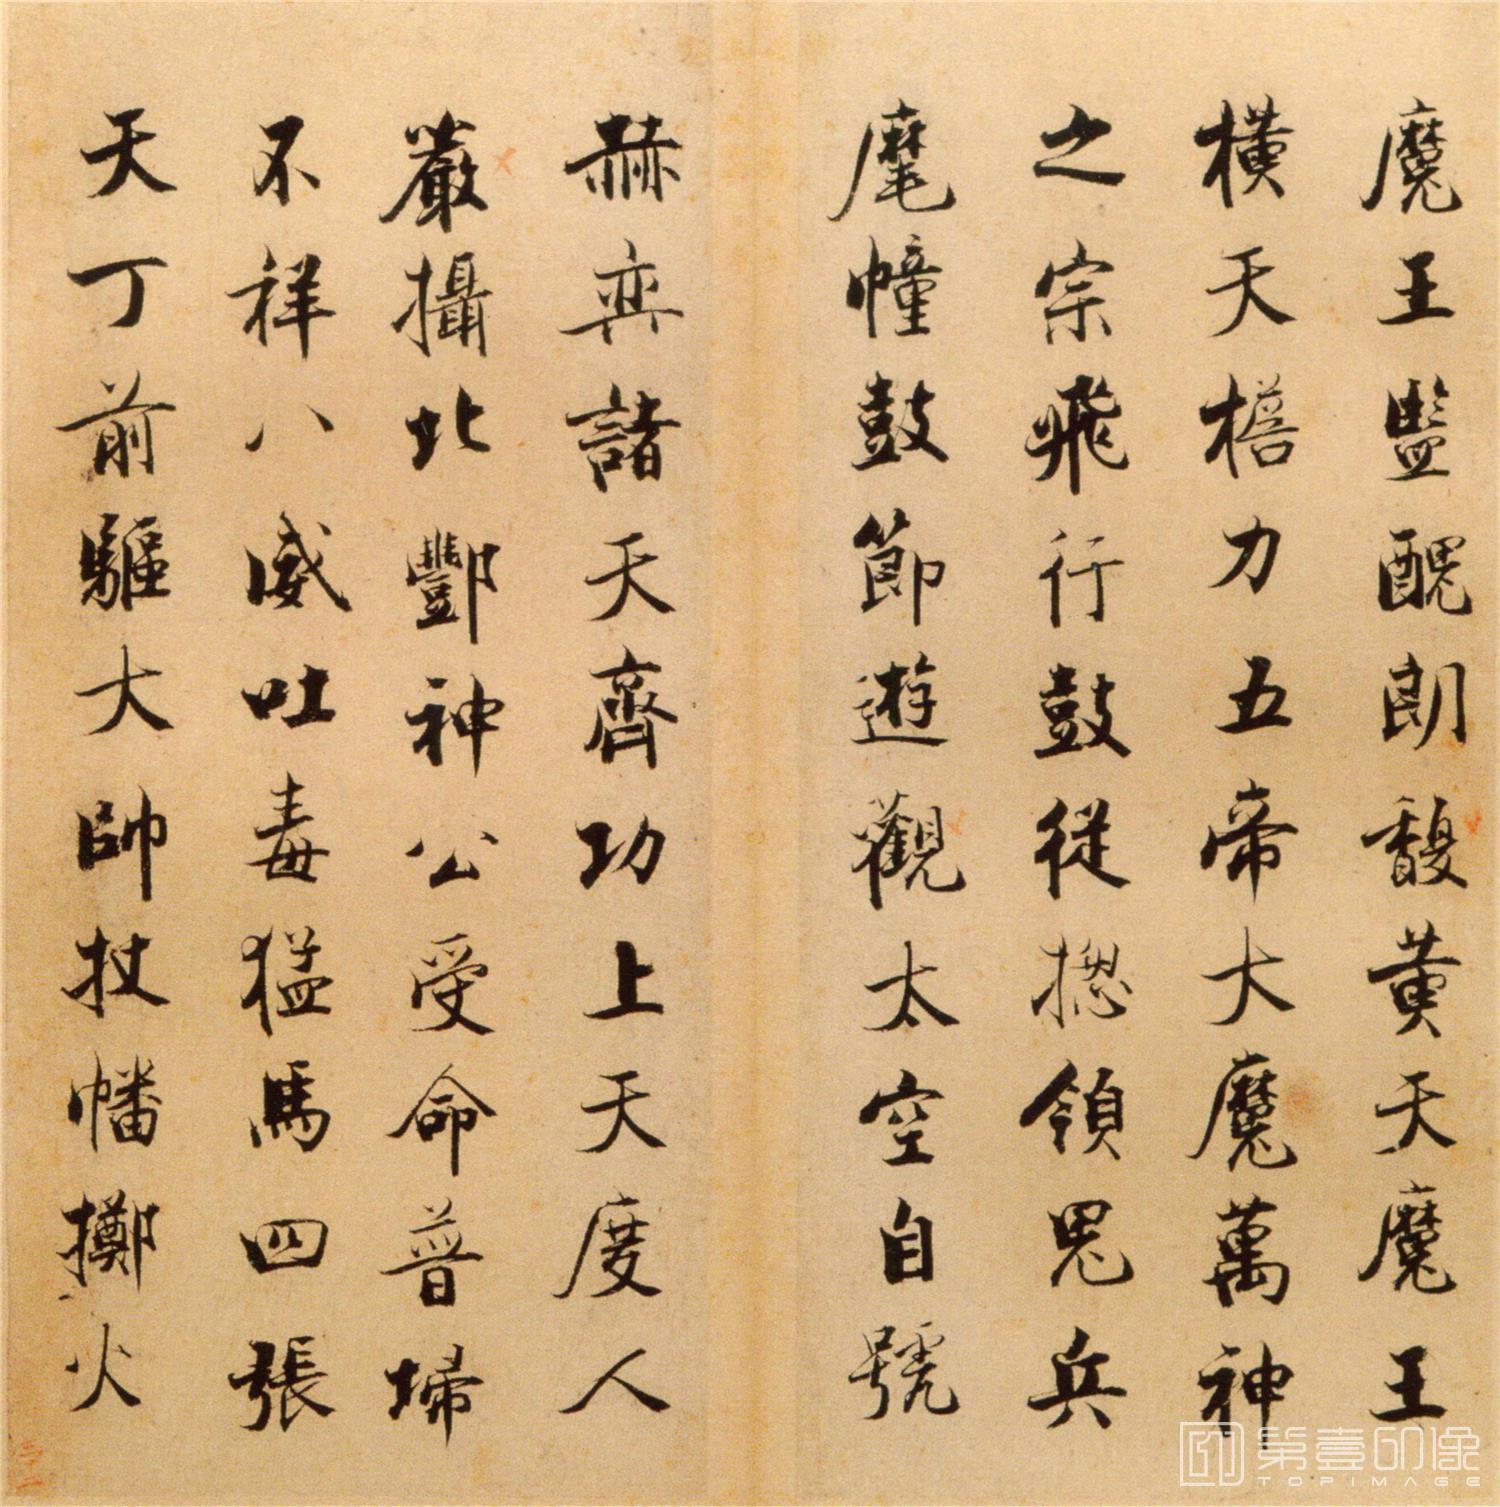 魔王監醜朗馥黃天魔王
橫天檐力五帝大魔萬神
之宗飛行鼓從揔領鬼兵
麾幢鼓節遊觀太空自號
赫弈諸天齊功上天度人
嚴攝北酆神公受命普埽
不祥八威吐毒猛馬四張
天丁前驅大帥杖幡擲火
第壹印像
TOPIMAGE